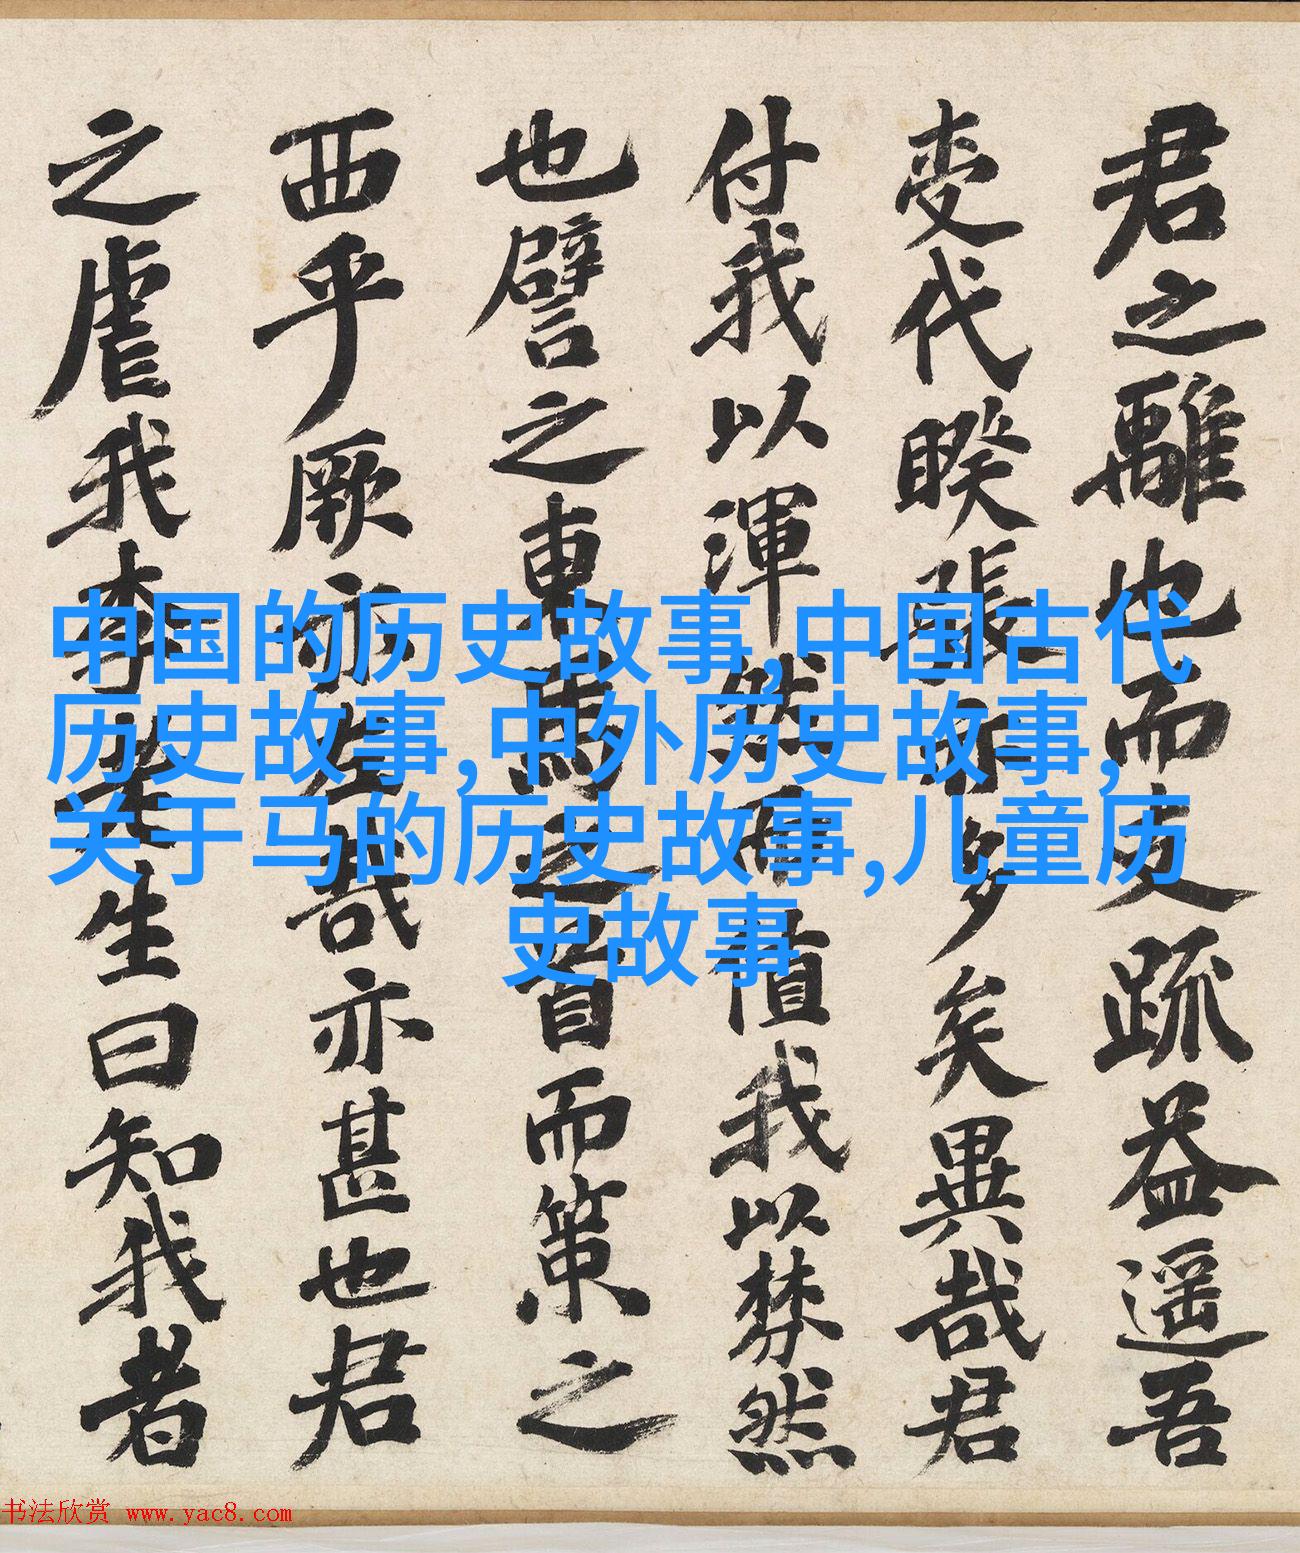 君之離也而疏益遥吾
代睽張多矣異哉君
付我以渾然而我以棼然
也譬之東馬之首而策之
西乎厥亦哉亦甚也君
之虐我李生曰知我者
中国的历史故事,中国古代
历史故事,中外历史故事,
关于马的历史故事,儿童历
史故事
书法欣赏 www.yac8.com